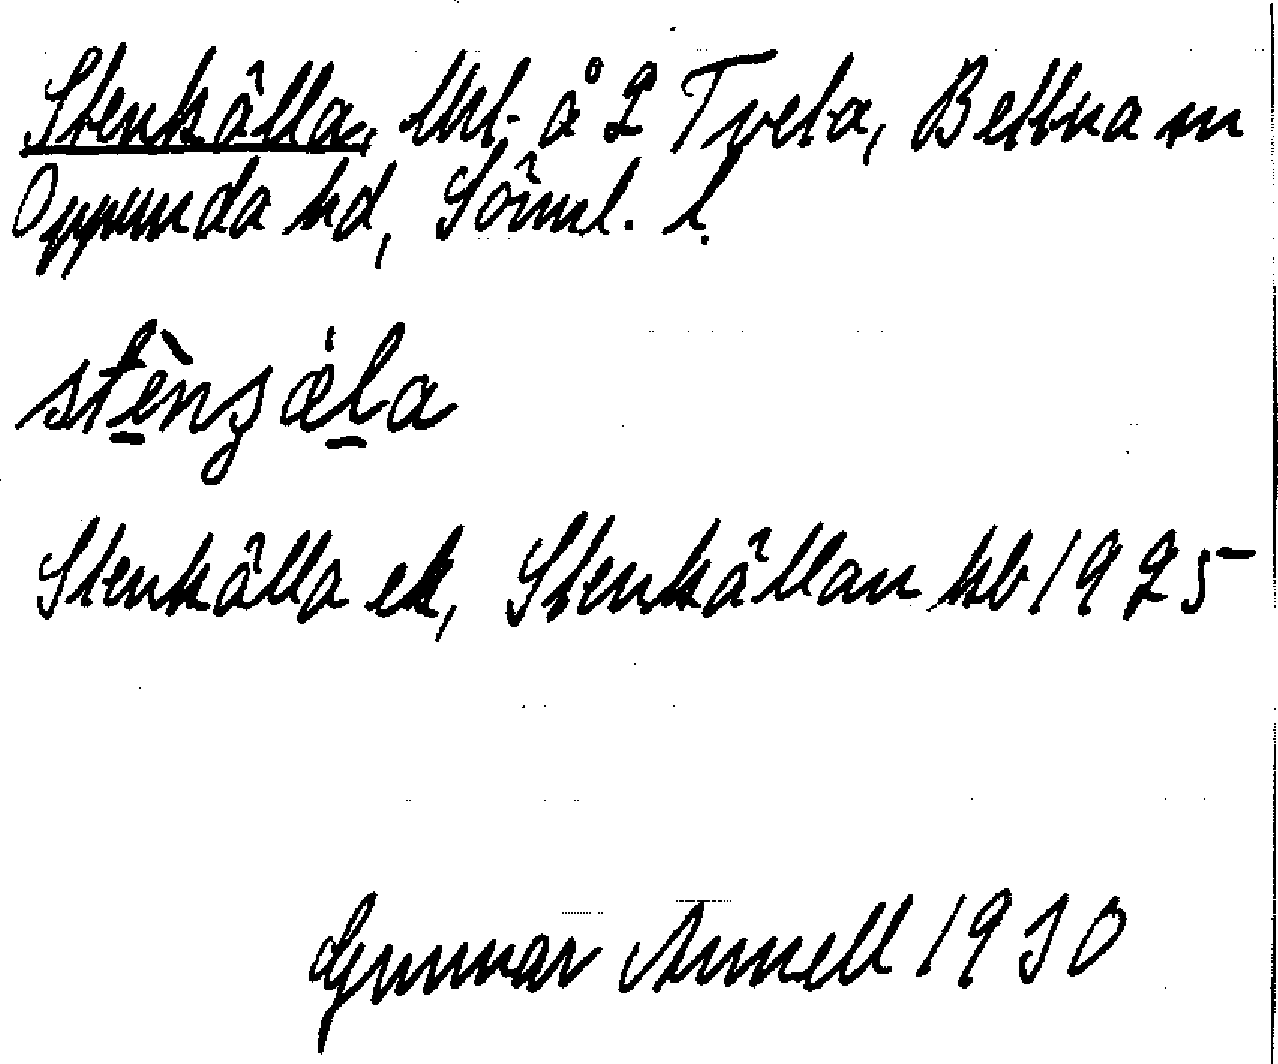 Stenkälla, Utl. å 2 Tveta, Bettna sn
Oppunda hd, Söml. l.
stènʒæ̍la
Stenkälla ek, Stenkällan kb 1925
Gunnar Annell 1930